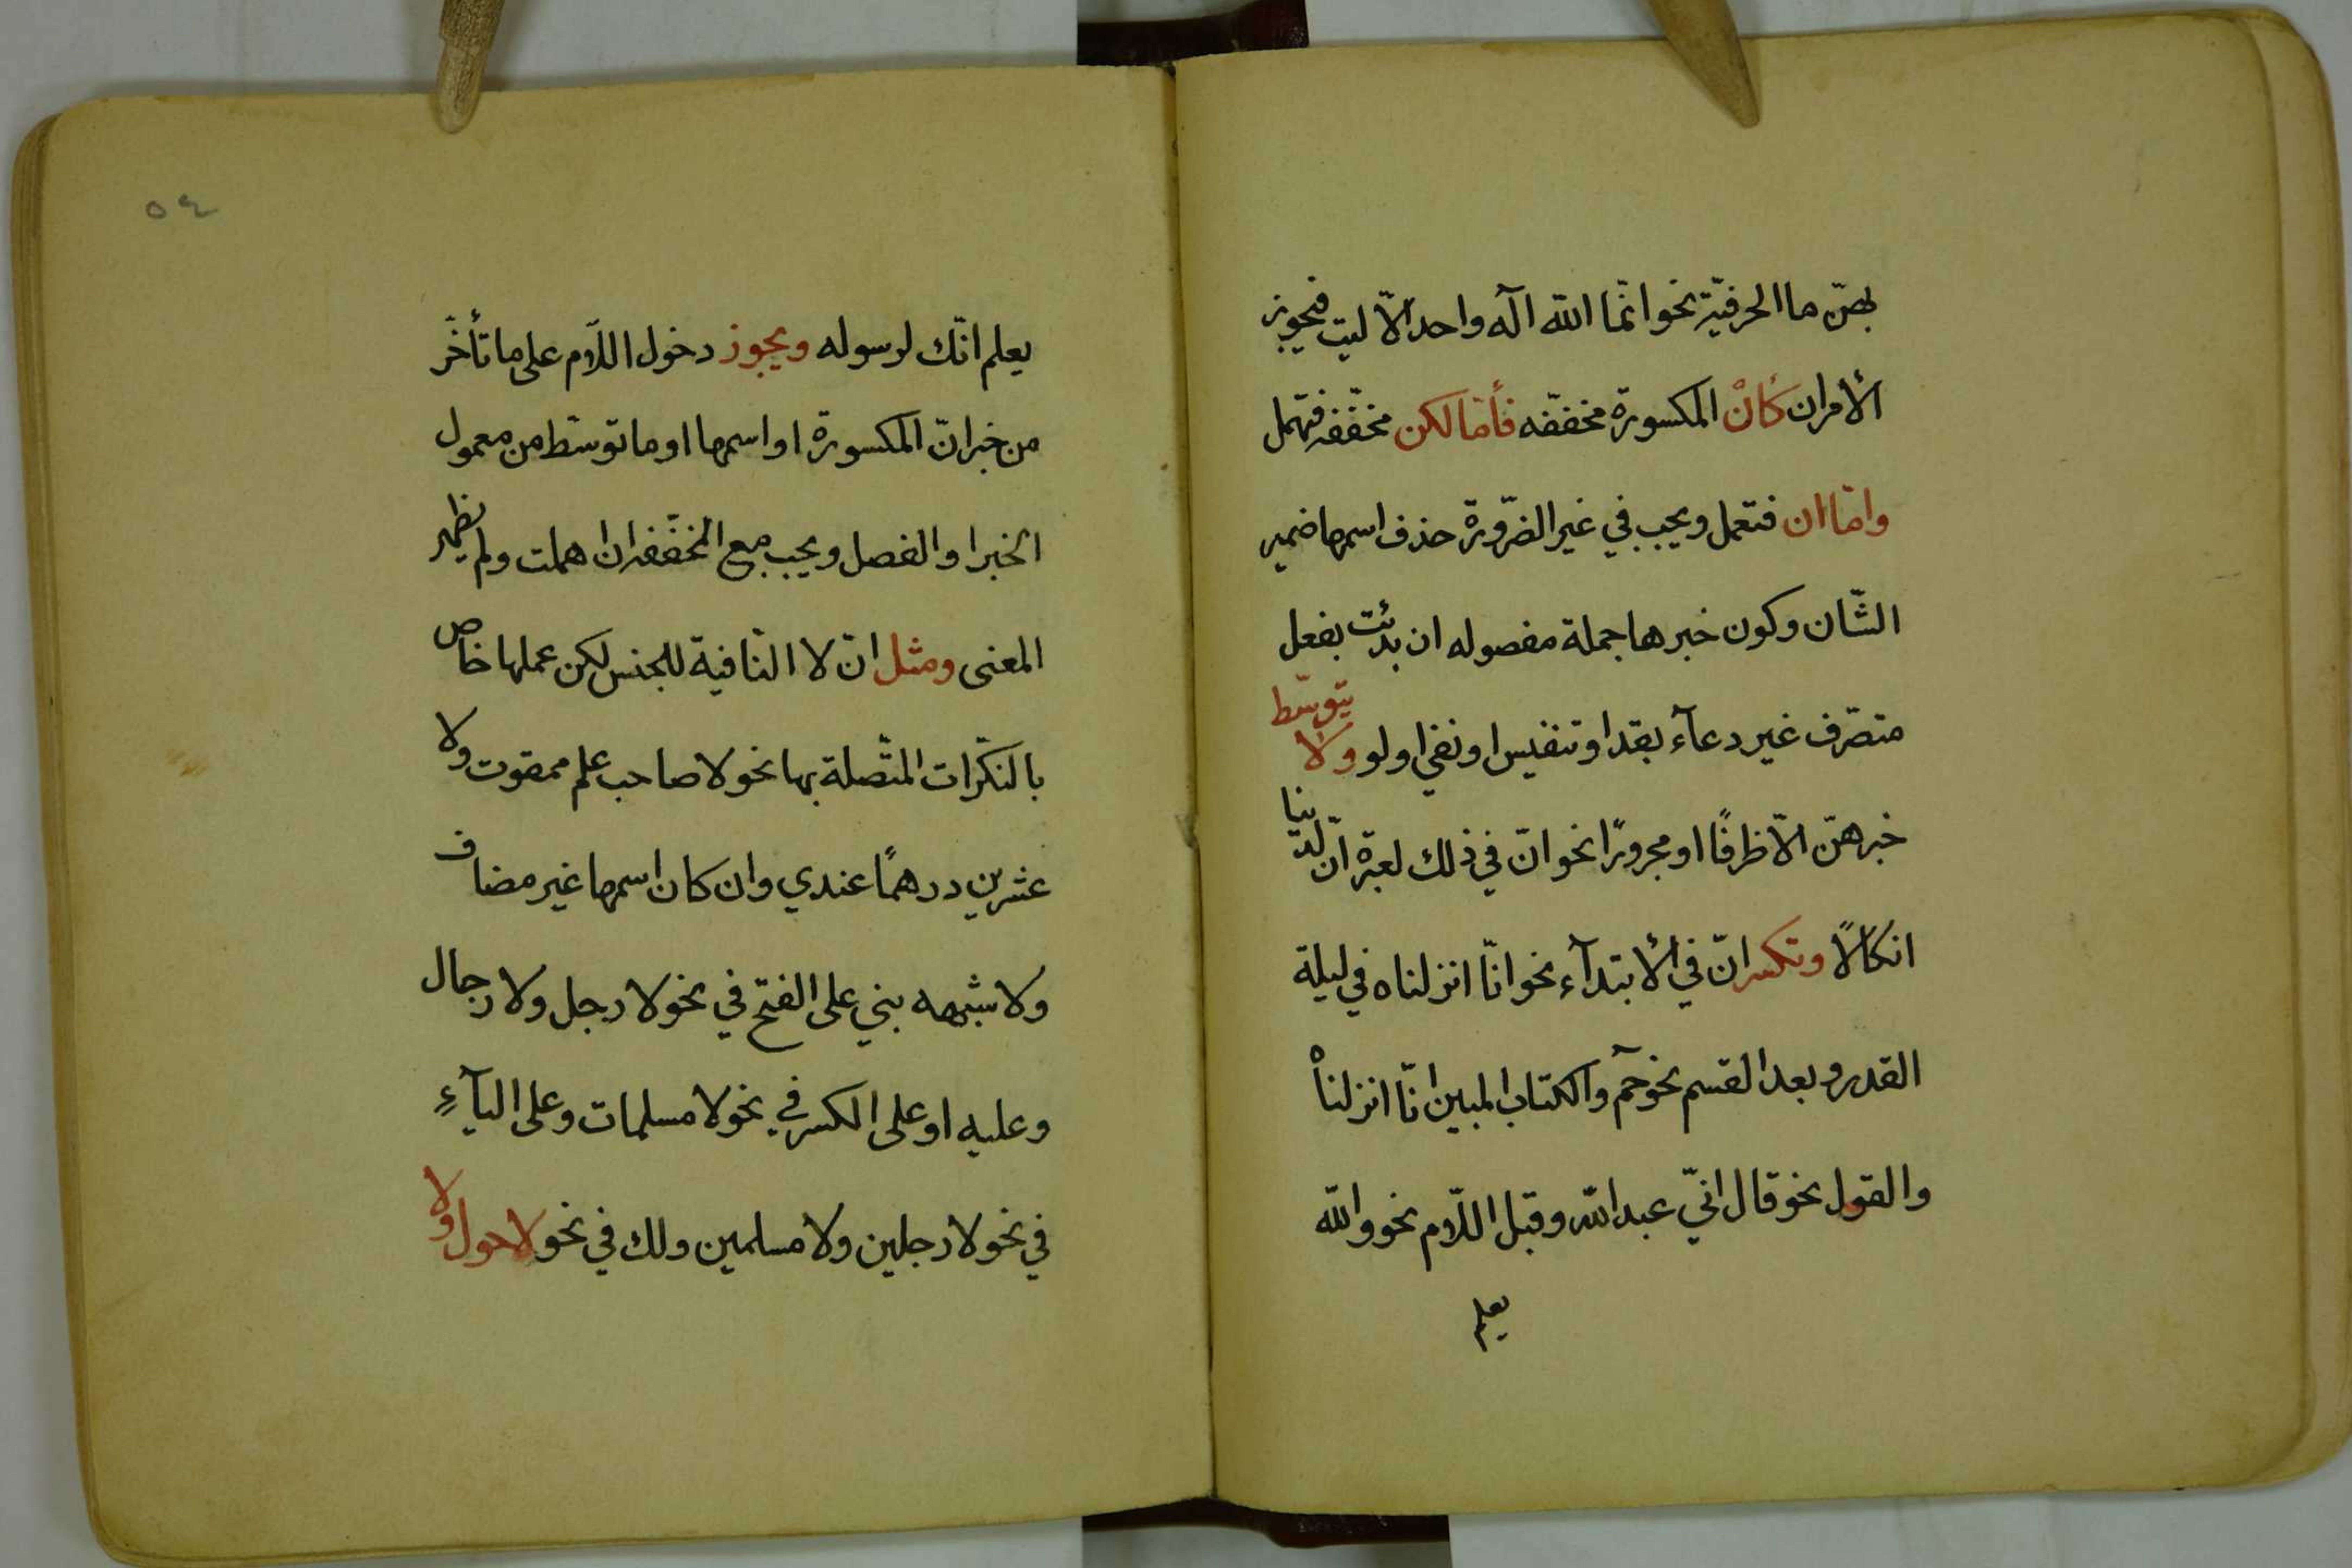 بهنّ ما الحرفيّة نحو انّما اللّه آله واحد الّا ليت فيجوز
الأمران كأنْ المكسورة مخففّه فأمّا لكن مخفّفه فتهمل
وامّا ان فتعمل ويجب في غير الضّرورة حذف اسمها ضمير
الشّان وكون خبرها جملة مفصوله ان بدئت بفعل
متصرّف غير دعآء بقد او تنفيس او نفي او لو ولا يتوسّط
خبرهنّ الّا ظرفًا او مجرورًا نحو انّ في ذلك لعبرة انّ لدينا
انكالًا وتكسر انّ في الأبتدآء نحو انّا انزلناه في ليلة
القدر وبعد القسم نحو حمٓ والكتاب المبين انّا انزلناهْ
والقول نحو قال انّي عبد اللّه وقبل اللّام نحو واللّه
يعلم
٥٤
يعلم انّك لرسوله ويجوز دخول اللّام على ما تأخّر
من خبر انّ المكسورة او اسمها او ما توسّط من معمول
الخبر او الفصل ويجب مع المخفّفه ان اهملت ولم يظهر
المعنى ومثل انّ لا النّافية للجنس لكن عملها خاص
بالنكّرات المتّصلة بها نحو لا صاحب علم ممقوت ولا
عشرين درهمًا عندي وان كان اسمها غير مضاف
ولا شبهه بني على الفتح في نحو لا رجل ولا رجال
وعليه او على الكسر في نحو لا مسلمات وعلى اليآءِ
في نحو لا رجلين ولا مسلمين ولك في نحو لا حول ولا